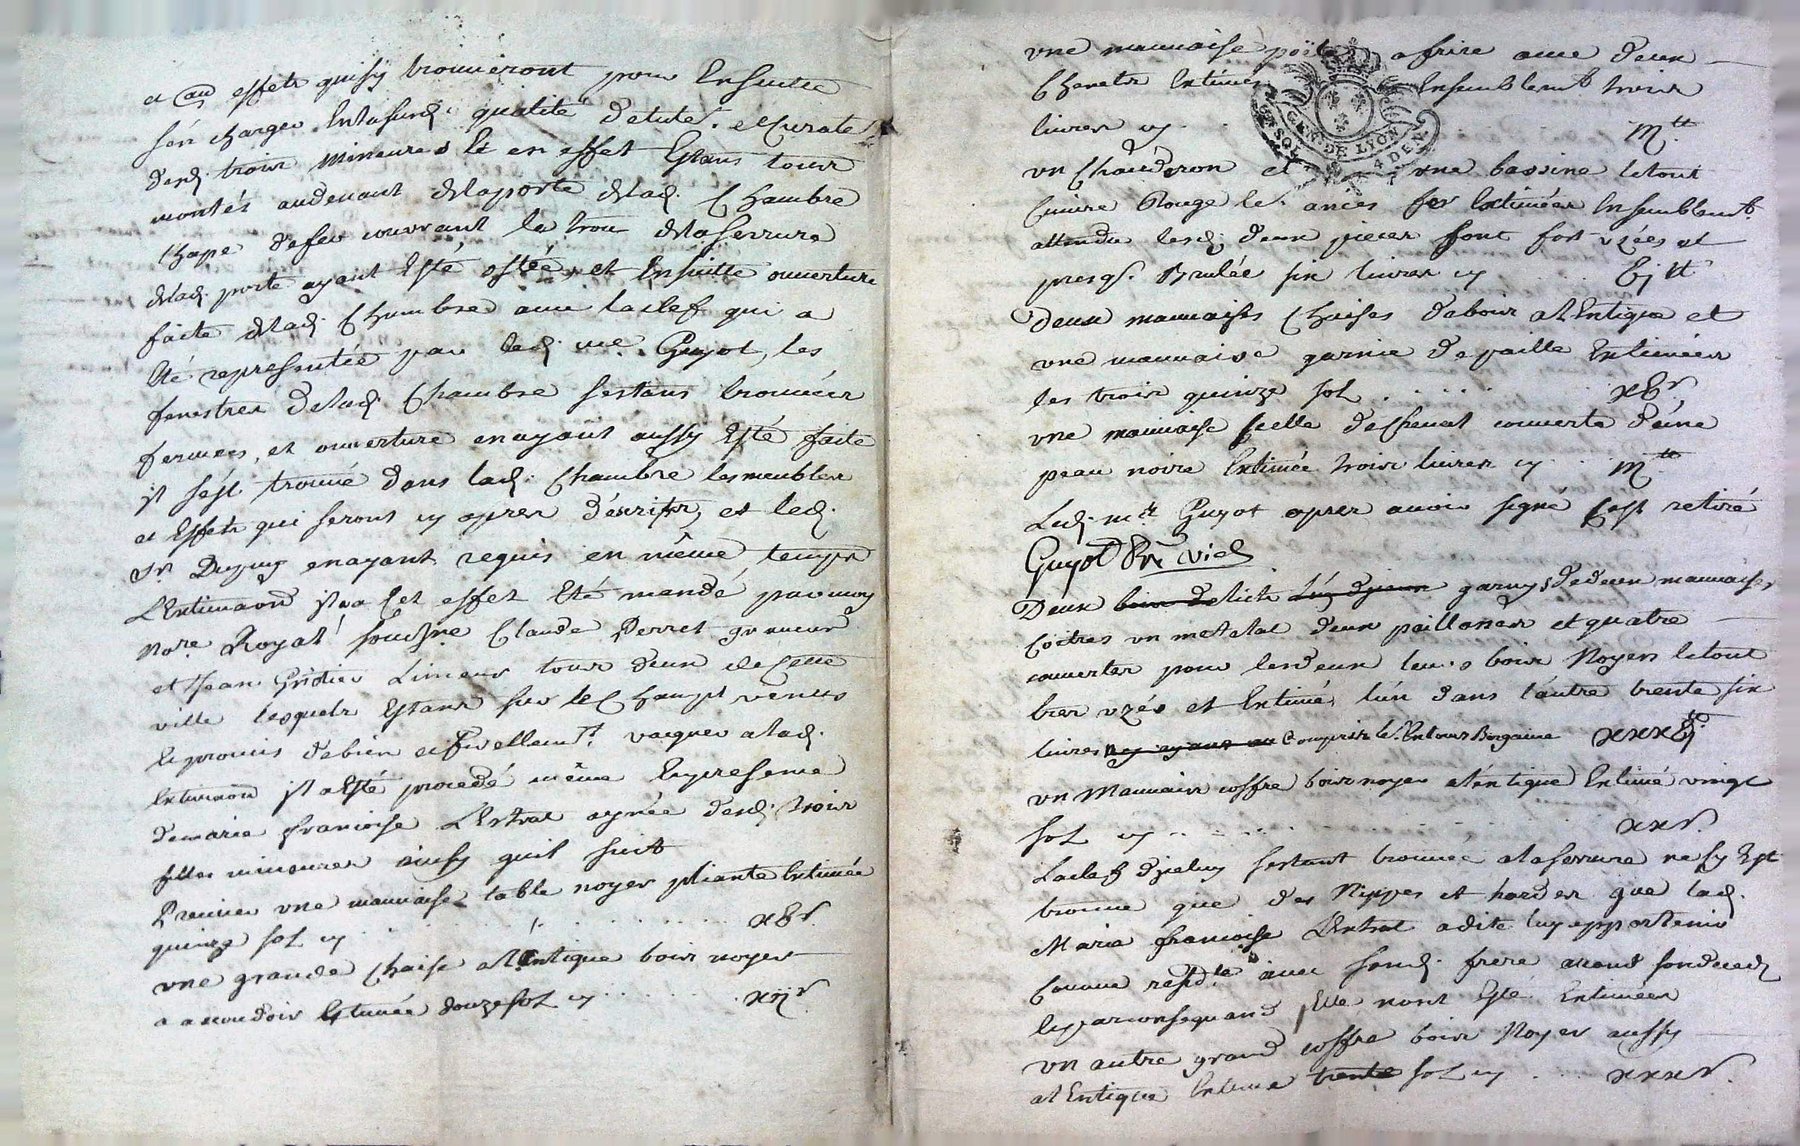 et aux effets quisy trouveront pour Ensuitte
sen charger Enlasusd. qualité detuté. et Curate
desd. trois Mineures Et en effet Estans tous
montés audevant delaporte delad. Chambre
delad. porte ayant Esté ostée, et Ensuitte ouverture
faite delad. Chambre avec laclef qui a
Eté representée par led. me. Guyot, les
fenestres delad. Chambre sestans trouvées
fermées, et ouverture enayant aussy Esté faite
jl sést trouvé dans lad. Chambre lesmeubles
et Effets qui seront cy apres déscrits, et led.
Sr. Dupuy enayant requis en même temps
LEstimaon jl a a cet effet Eté mandé parnous
Nore. Royal soussne Claude Perret graveur
et Jean Limeur tous deux decette
ville lesquels Estans sur leChampt venus
Expromis debien et fidellemt. vacquer alad.
Estimaon jl aEsté procedé même Enpresence
demarie francoise LEstrat aynée desd. trois
filles mineures ainsy quil suit
Premier une mauvaise table noyer pliante Estimée
quinze sol cy . . . . xv s.
une grande Chaise alEntique bois noyer
a acoudoir Estimée douzesol cy . . . . xij s.
une mauvaise poële a frire avec deux
Chenets Estimés Ensemblemt. trois
livres cy . . . . III tt
GEN. DE LYON
4 DEN.
un Chauderon et une bassine letout
Cuivre Rouge les ances fer Estimées Ensemblemt.
attendu lesd. deux pieces sont fort uzées et
presq. Brulée six livres cy . . . . vj tt
Deux mauvaises Chaises debois alEntique et
une mauvaise garnie de paille Estimées
les trois quinze sol . . . . xv s.
une mauvaise selle decheval couverte d'une
peau noire Estimée trois livres cy . . III tt
Led. me. Guyot apres avoir signé sest retiré
Guyot
Deux lict garnys dedeux mauvaises
Coitres un matelat deux paillasses et quatre
couvertes pour lesdeux bois Noyer letout
bien uzés et Estimé, lun dans l'autre trente six
livres Compris le xxxvj tt
un Mauvais coffre bois noyer alentique Estimé vingt
sol cy . . . . xx s.
Laclef djceluy sestant trouvée alaserrure ne sy Est
trouvé que des Nippes et hardes que lad.
Marie francoise LEstrat adite luy appartenir
Comme avec sond. frere
Enparconsequand Elle nont Esté Estimées
un autre grand coffre bois Noyer aussy
alEntique Estimé trente sol cy . . xxx s.